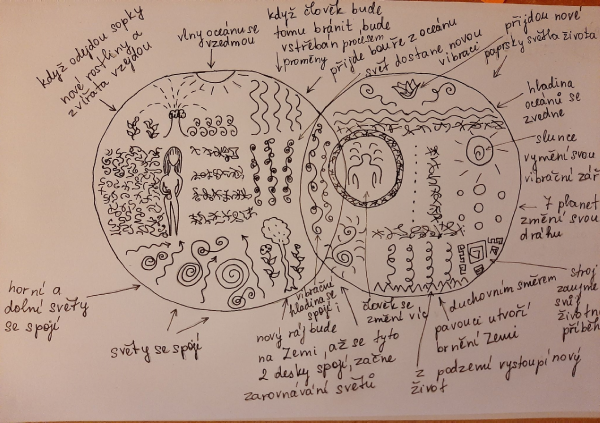 když odejdou sopky
nové rostliny a
zvířata vzejdou
vlny oceánu se
vzedmou
když člověk bude
tomu bránit, bude
vstřebán procesem
proměny
přijde bouře z oceánu
svět dostane novou
vibraci
přijdou nové
paprsky světla života
hladina
oceánů se
zvedne
slunce
vymění svou
vibrační zář
7 planet
změní svou
dráhu
stroj
zaujme
svůj
životní
příběh
duchovním směrem
pavouci utvoří
brnění Zemi
z podzemí vystoupí nový
život
člověk se
změní víc
vibrační
hladina se
spojí
nový ráj bude
na Zemi, až se tyto
2 desky spojí, začne
zarovnávání světů
světy se spojí
horní a
dolní světy
se spojí